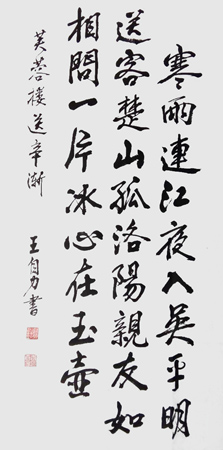 寒雨連江夜入吳平明
送客楚山孤洛陽親友如
相問一片冰心在玉壺
芙蓉樓送辛漸
王自力書